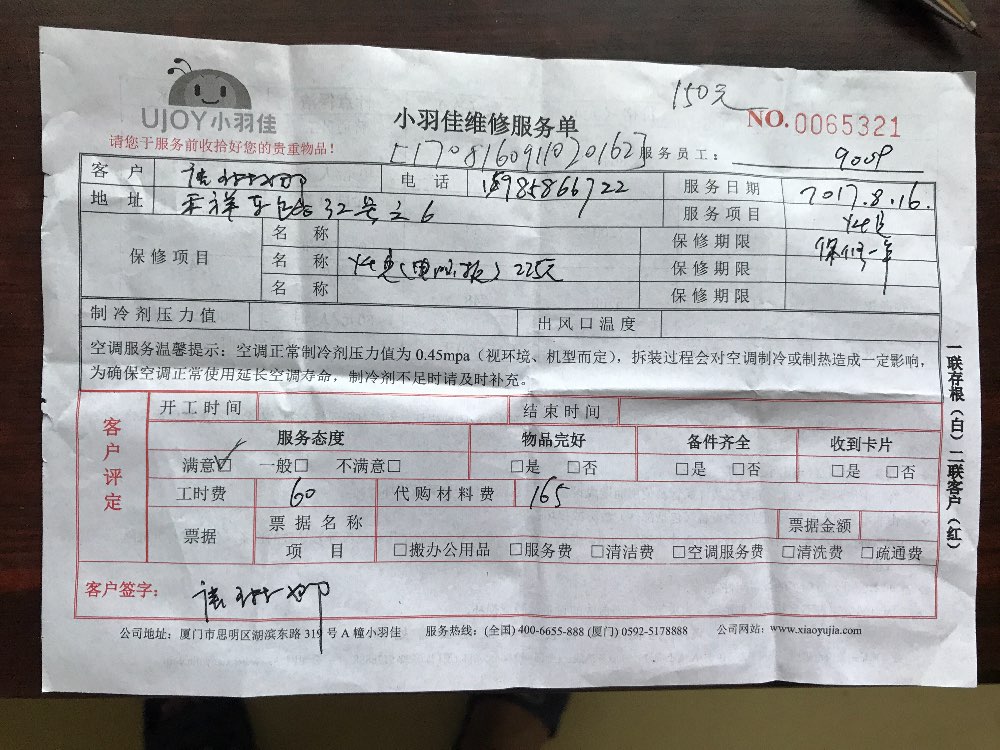 150元
UJOY小羽佳
小羽佳维修服务单
NO.0065321
请您于服务前收拾好您的贵重物品！
服务员工：
客户 电话 服务日期 2017.8.16.
地址 32号之6 服务项目
保修项目
名称 保修期限 保修一年
名称 225元 保修期限
名称 保修期限
制冷剂压力值 出风口温度
空调服务温馨提示：空调正常制冷剂压力值为 0.45mpa（视环境、机型而定），拆装过程会对空调制冷或制热造成一定影响，
为确保空调正常使用延长空调寿命，制冷剂不足时请及时补充。
客户评定
开工时间 结束时间
服务态度 物品完好 备件齐全 收到卡片
满意□ 一般□ 不满意□ □是 □否 □是 □否 □是 □否
工时费 60 代购材料费 165
票据 票据名称 票据金额
项目 □搬办公用品 □服务费 □清洁费 □空调服务费 □清洗费 □疏通费
客户签字：
公司地址：厦门市思明区湖滨东路 319 号 A 幢小羽佳 服务热线：(全国) 400-6655-888 (厦门) 0592-5178888 公司网站：www.xiaoyujia.com
一联存根（白）二联客户（红）